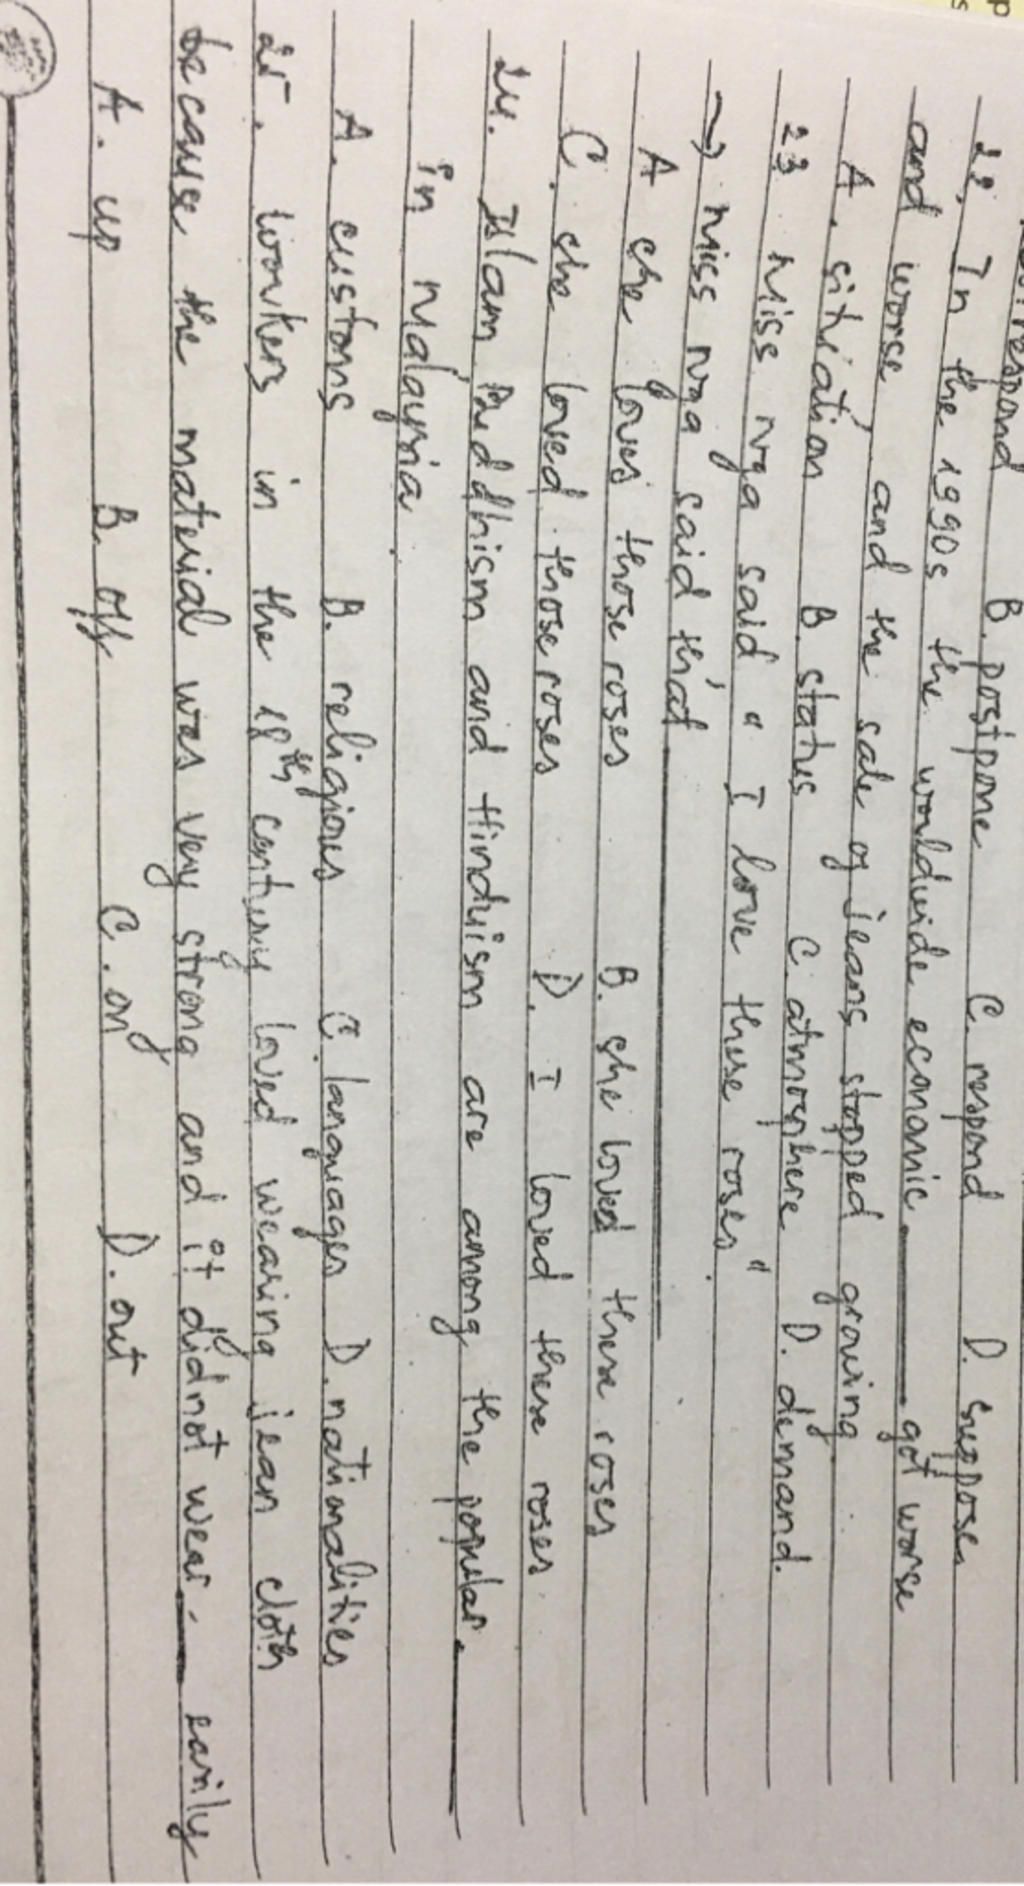 respond B. postpone C. respond D. suppose
22, In the 1990s the worldwide economic ____ got worse
and worse and the sale of jeans stopped growing
A. situation B. status C. atmosphere D. demand.
23 Miss Nga said " I love these roses".
→ Miss Nga said that ____
A she loves those roses B. she loved these roses
C. she loved those roses D. I loved these roses
24. Islam, Buddhism and Hinduism are among the popular ____
in Malaysia.
A. customs B. religious C. languages D. nationalities
25. workers in the 18th century loved wearing jean cloth
because the material was very strong and it didnot wear ____ easily
A. up B. off C. on D. out